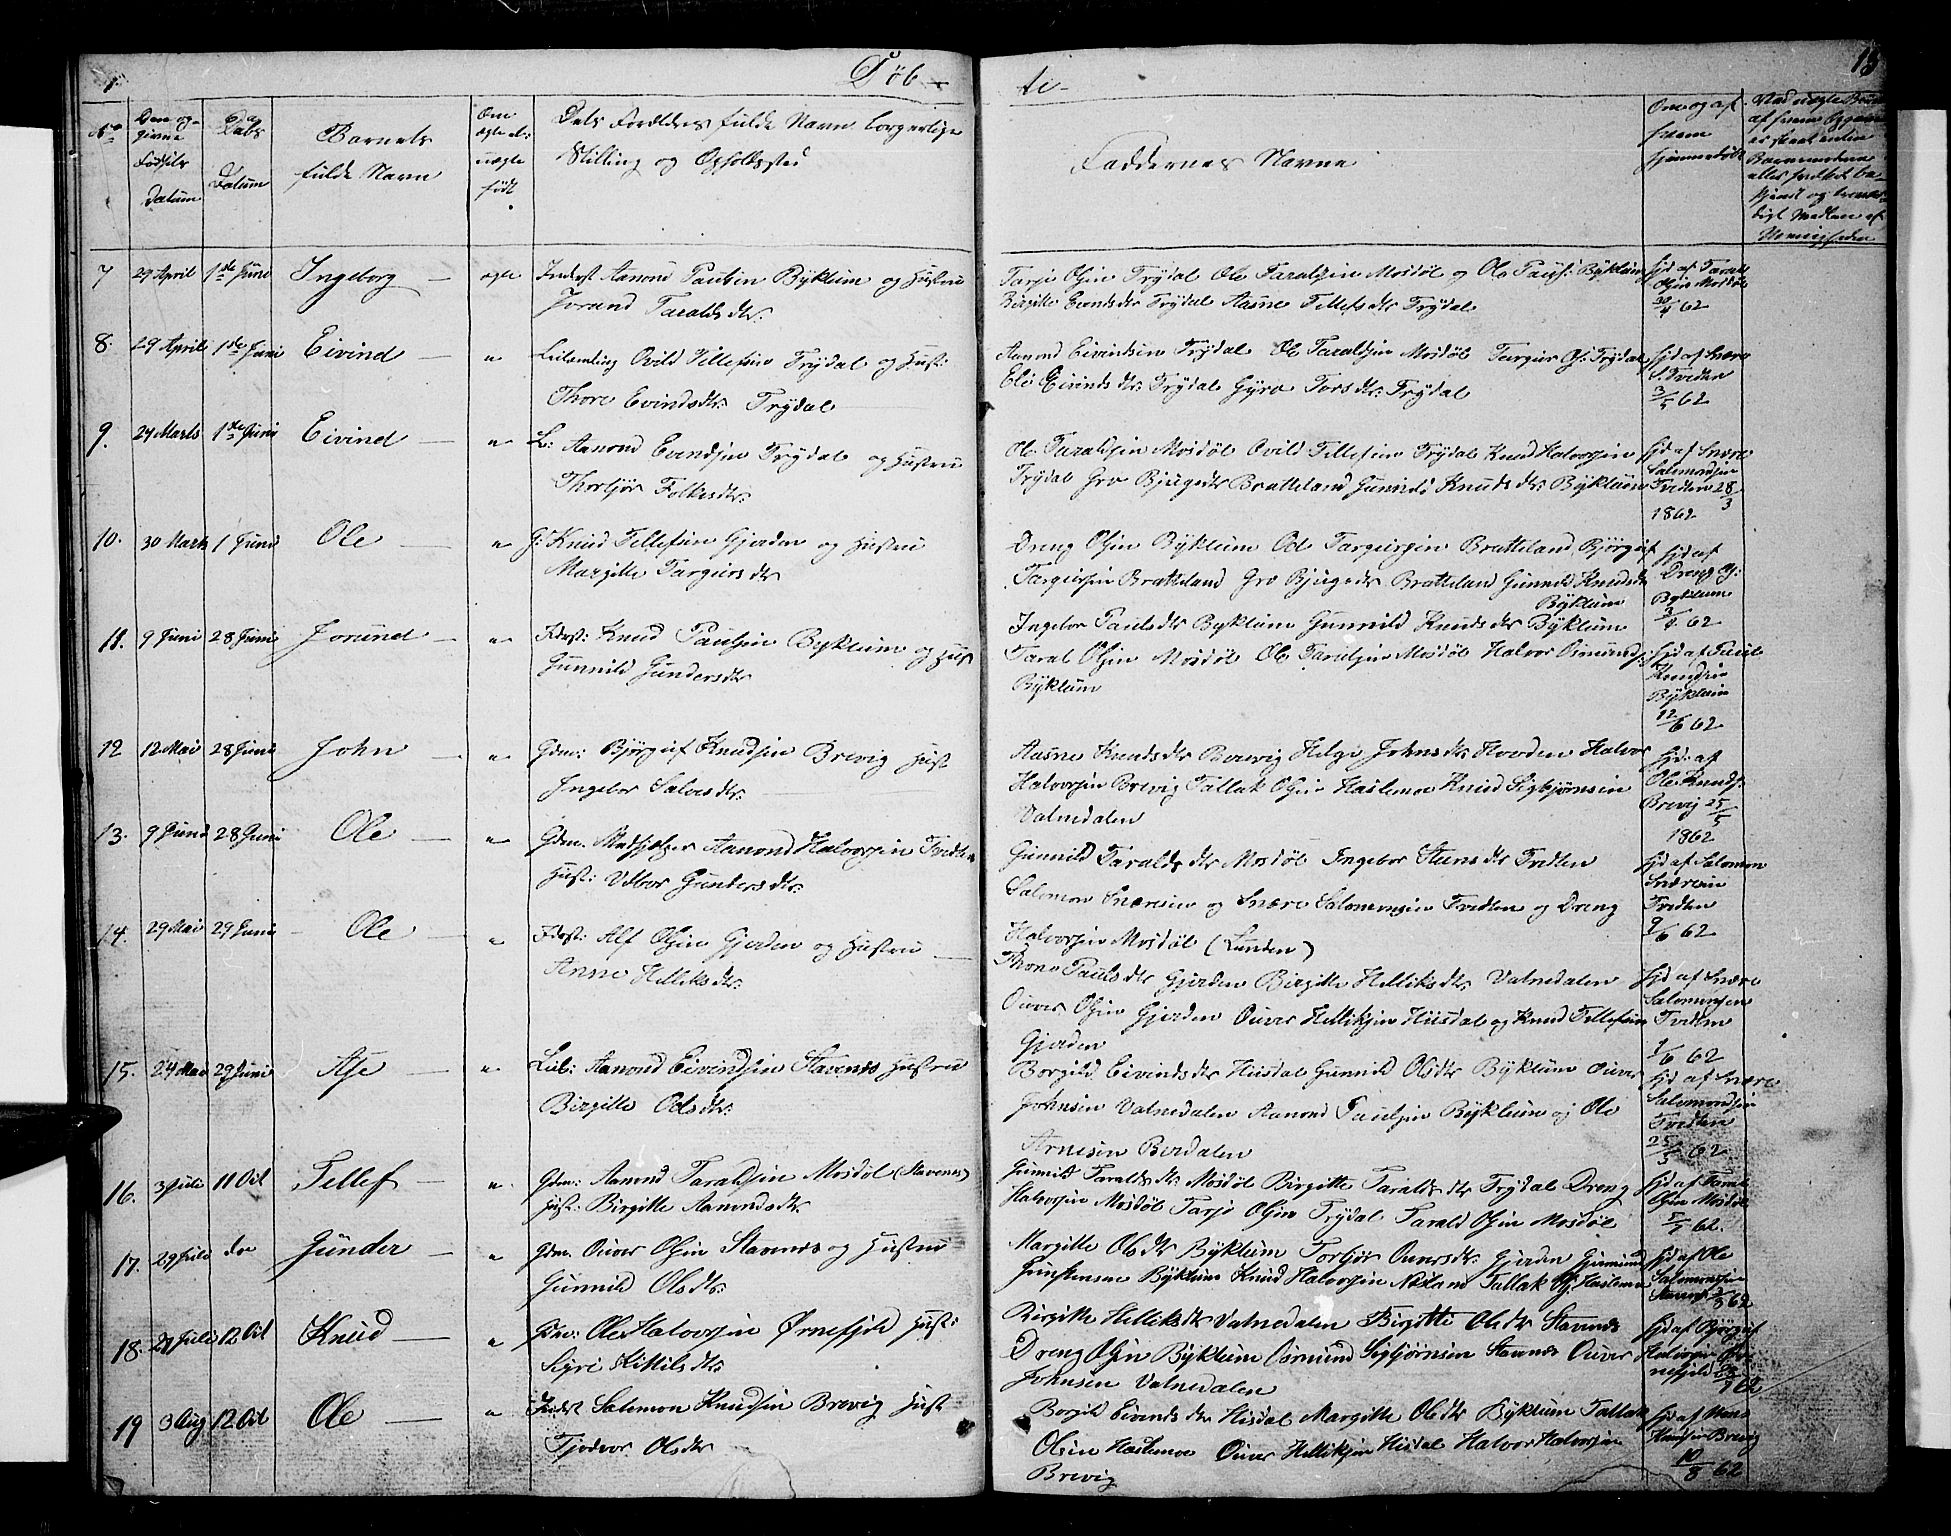 1 Døb-
te- 13
No
Den op-
givne
Fødsels
Datum
Daabs
Datum
Barnets
fulde Navn
Om
ægte el:
uægte
født
Dets Forældres fulde Navn borgerlige
Stilling og Opholdssted
Faddernes Navne
Om og af
hvem
hjemmedøbt
7 29 April 1de Juni Ingeborg ægte Inderst Aanond Paulsen Bÿklum og Hustru
Jorand Taralds dtr:
Tarje Olsen Trÿdal Ole Taraldsen Mosdøl og Ole Pauls: Bÿklum
Birgitte Evends dtr Trÿdal Aasne Tellefs dtr Trÿdal
hjd af Tarald
Olsen Mosdøl
30/4 62
8. 29 April 1de Juni Eivind " Leilænding Ovild Tellefsen Trÿdal og Hust:
Thore Evindsdtr: Trÿdal
Aanond Eivindsen Trÿdal Ole Taraldsen Mosdøl Targier Ols: Trÿdal
Eli Eivinds dtr: Trÿdal Gÿro Tors dtr: Trÿdal
hjd af Snære
S. Tveden
3/5 62
9. 24 Marts 1de Juni Eivind " L: Aanond Evendsen Trÿdal og Hustru
Thorbjør Folkes dtr:
Ole Taraldsen Mosdøl Ovild Tellefsen Trÿdal Knud Halvorsen
Trÿdal Gro Bjugs dtr Bratteland Gunnild Knuds dtr: Bÿklum
hjd af Snære
Salomonsen
Tvedten 28/3
1862
10. 30 Marts 1 Juni Ole " G: Knud Tellefsen Gjerden og Hustru
Margitte Targiers dtr
Dreng Olsen Bÿklum Ole Targiersen Bratteland Bjørguf
Targiersen Bratteland Gro Bjugs dtr Bratteland Gunnild Knudsdtr
Bÿklum
hjd af
Dreng Ols:
Byklum
3/4 62
11. 9 Juni 28 Juni Jorund " Idrst: Knud Paulsen Bÿklum og Hust
Gunnild Gunders dtr
Ingebor Pauls dtr Byklum Gunnild Knuds dtr Bÿklum
Taral Olsen Mosdøl Ole Taraldsen Mosdøl Halvor Osmunds:
Bÿklum
hjd af Paul
Knudsen
Bÿklum
12/6 62
12 12 Mai 28 Juni John " Gdm: Bjørguf Knudsen Brevig Hust
Ingebor Salves dtr:
Aasne Knuds dtr Brevig Helge Johns dtr Hovden Halvor
Halvorsen Brevig Tallak Olsen Haslemoe Knud Sigbjørnsen
Valnedalen
hjd: af
Ole Knuds:
Brevig 25/5
1862
13. 9 Juni 28 Juni Ole " Gdm. Aanond Halvorsen Tvedten
Hust: Udbor Gunders dtr:
Gunnild Taralds dtr Mosdøl Ingebor Steens dtr Tvedten
Salomon Snæresen og Snære Salomonsen Tvedten og Dreng
Halvorsen Mosdøl (Lunden)
hjd af Salomon
Snæresen
Tvedten
9/6 62
14. 29 Mai 29 Juni Ole " Idrst: Alf Olsen Gjerden og Hustru
Anne Helleks dtr:
Thone Pauls dtr Gjerden Birgitte Helleks dtr Valnedalen
Ouver Olsen Gjerden Ouver Helliksen Hiisdal og Knud Tellefsen
Gjerden
hjd af Snære
Salomonsen
Tvedten
1/6 62
15. 24 Mai 29 Juni Asje " Leil: Aanond Eivindsen Stavenes Hustru
Birgitte Ods dtr:
Borgild Eivinds dtr Hiisdal Gunnild Ols dtr Bÿklum Ouver
Johnsen Valnedalen Aanond Paulsen Bÿklum og Ole
Arnesen Berdalen
hjd af Snære
Salomonsen
Tvedten
25/5 62
16. 3 Juli 11 Oct Tellef " Gdm: Aanond Taraldsen Mosdøl (Stavenes)
Hust: Birgitte Aanonds dtr
Gunnild Taralds dtr Mosdøl Birgitte Taralds dtr Trÿdal Dreng
Halvorsen Mosdøl Tarje Olsen Trÿdal Tarald Olsen Mosdøl
hjd af Taral
Olsen Mosdøl
5/7 62.
17. 29 Juli do Gunder " Gdm. Ouver Olsen Stavenes og Hustru
Gunnild Ols dtr:
Margitte Ols dtr Bÿklum Torbjør Ouvers dtr: Gjerden
Bÿklum Knud Halvorsen Tallak Ols: Haslemoe
hjd af Ole
Salomonsen
18. 27 Juli 12 Oct Knud " Gdm: Ole Halvorsen Ørnefjeld Hust:
Sigri Kittils dtr:
Birgitte Helleks dtr Valnedalen Birgitte Ols dtr Stavenes
Dreng Olsen Bÿklum Osmund Sigbjørnsen Stavnes Ouver
Johnsen Valnedalen
hjd af Bjørguf
Halvorsen Ør-
nefjeld
19 3 Aug 12 Oct Ole " Indrst Salomon Knudsen Brevig Hust
Tjodvor Ols dtr
Borgild Eivends dtr Hisdal Margitte Ols dtr Bÿklum Tallak
Olsen Haslemoe Ouver Helliksen Hisdal Halvor Halvorsen
Brevig
hjd af
Knudsen Brevig
10/8 62